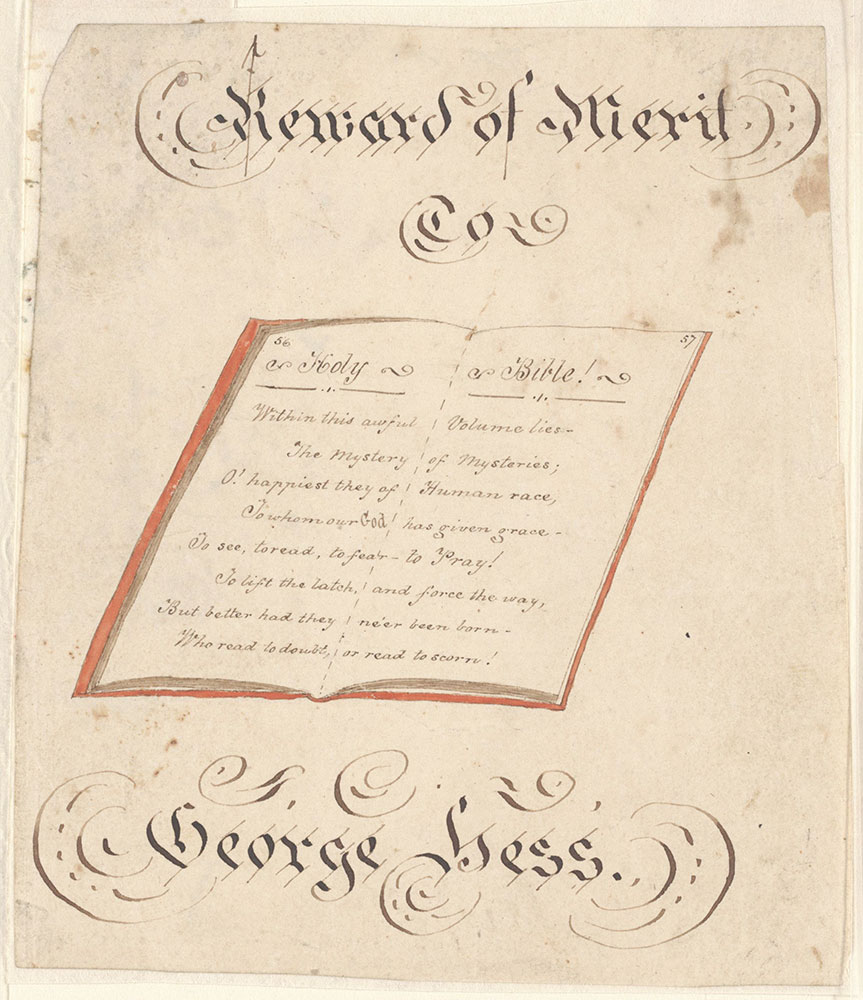 Reward of Merit
To
56 57
Holy Bible!
Within this awful Volume lies-
The Mystery of Mysteries;
O! happiest they of Human race,
To whom our God has given grace-
To see, to read, to fear- to Pray!
To lift the latch, and force the way,
But better had they ne'er been born-
Who read to doubt, or read to scorn!
George Hess.